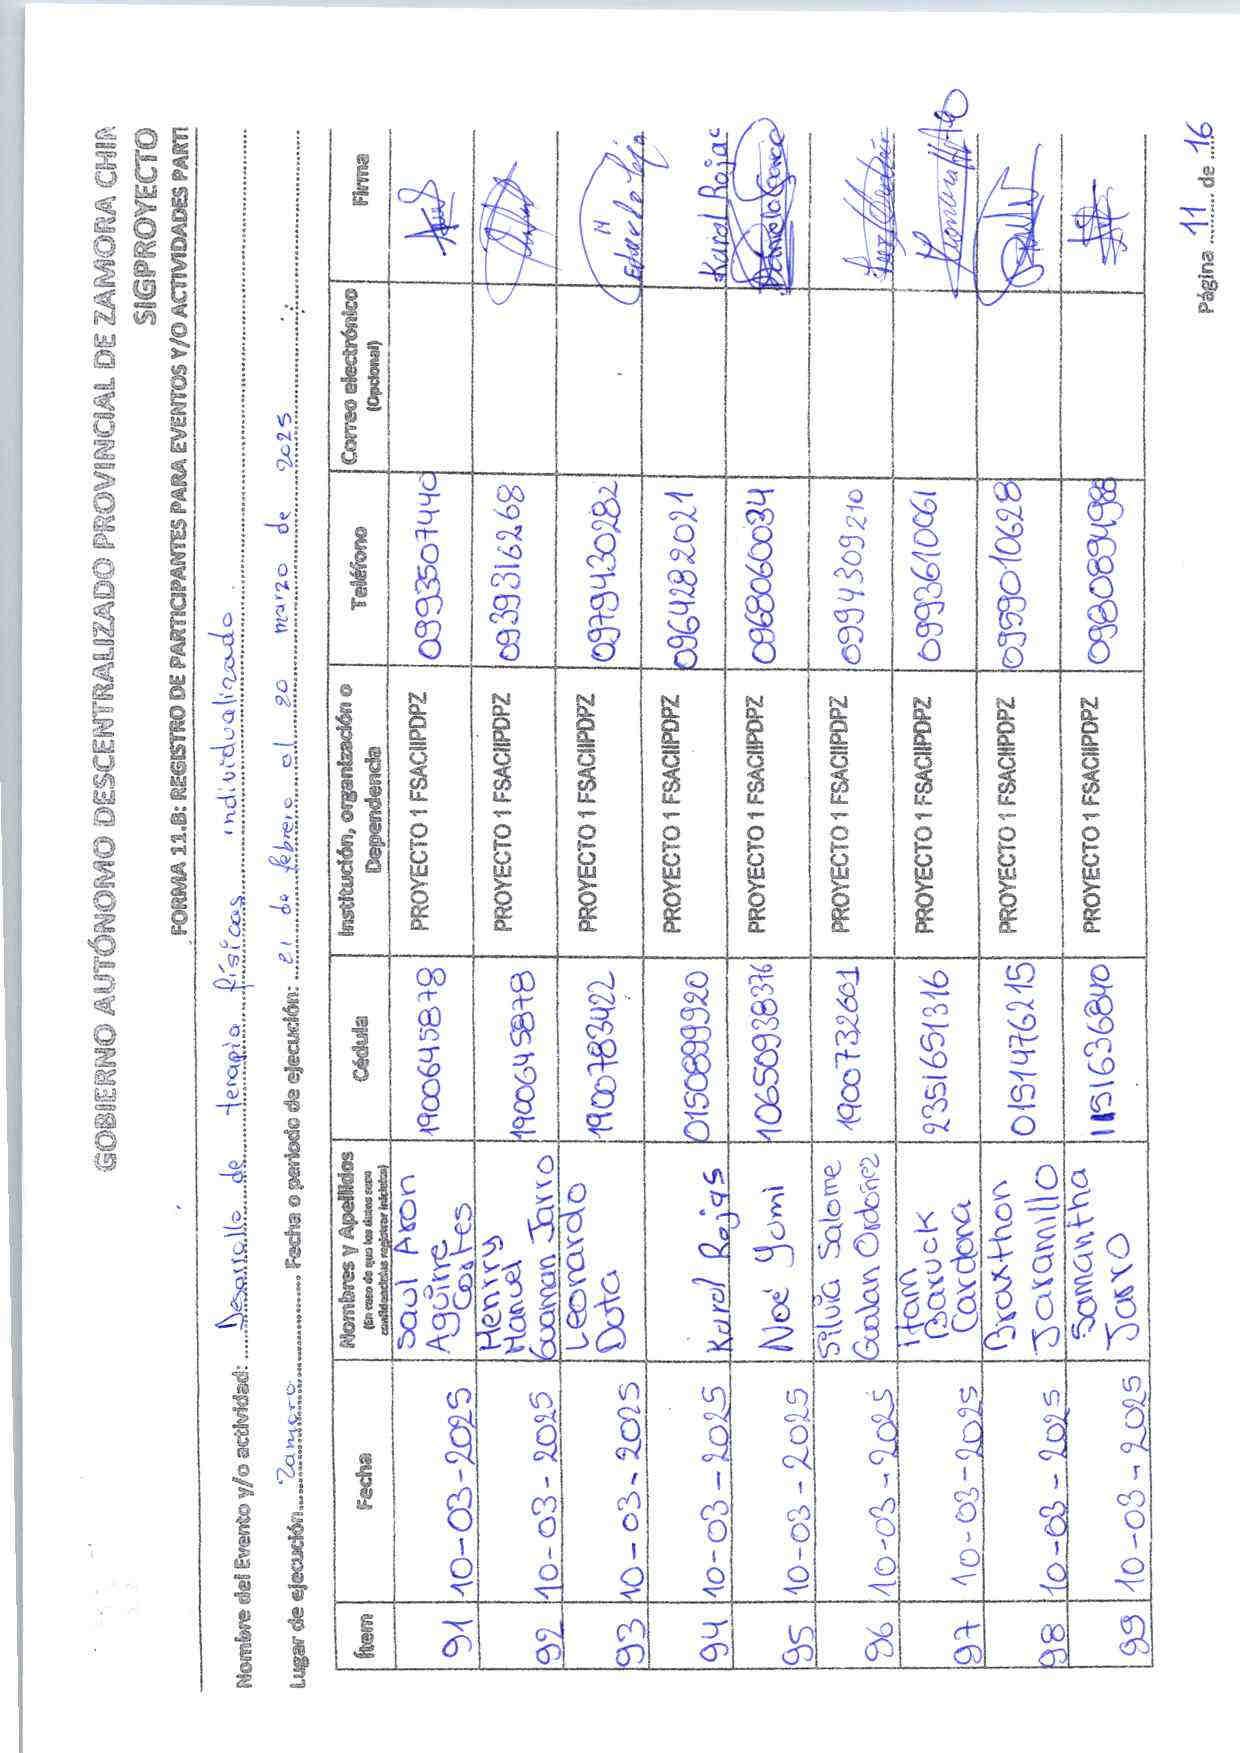 GOBIERNO AUTÓNOMO DESCENTRALIZADO PROVINCIAL DE ZAMORA CHIN
SIGPROYECTO
FORMA 11.B: REGISTRO DE PARTICIPANTES PARA EVENTOS Y/O ACTIVIDADES PARTI
Nombre del Evento y/o actividad: Desarrollo de terapia físicas individualizado.
Lugar de ejecución Zamora Fecha o periodo de ejecución: 21 de febrero al 20 marzo de 2025
Ítem Fecha Nombres y Apellidos (En caso de que los datos sean confidenciales registrar iniciales) Cédula Institución, organización o Dependencia Teléfono Correo electrónico (Opcional) Firma
91 10-03-2025 Saul Aron Aguirre Cortes 1900645878 PROYECTO 1 FSACIIPDPZ 0993507440
92 10-03-2025 Henry Manuel Guaman Jarro 1900645878 PROYECTO 1 FSACIIPDPZ 0939316268
93 10-03-2025 Leonardo Duta 1900783422 PROYECTO 1 FSACIIPDPZ 0979430282
94 10-03-2025 Karel Rojas 0150899920 PROYECTO 1 FSACIIPDPZ 0964282021 Karol Rojas
95 10-03-2025 Noé Yumi 10650938376 PROYECTO 1 FSACIIPDPZ 0968060034
96 10-03-2025 Silvia Salome Gualan Ordoñez 1900732601 PROYECTO 1 FSACIIPDPZ 0994309210
97 10-03-2025 Itam Baruck Cardona 2351651316 PROYECTO 1 FSACIIPDPZ 0993610061
98 10-03-2025 Braxthon Jaramillo 0151476215 PROYECTO 1 FSACIIPDPZ 0959010628
99 10-03-2025 Samantha Jaro 1151636840 PROYECTO 1 FSACIIPDPZ
Página 11 de 16